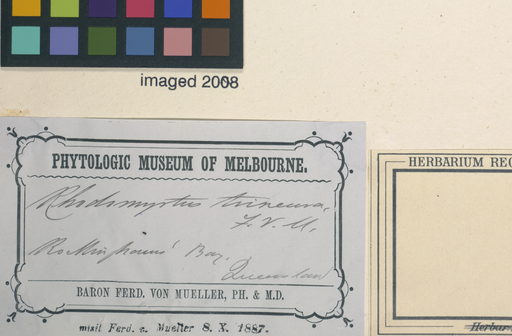 imaged 2008
PHYTOLOGIC MUSEUM OF MELBOURNE.
Rhodomyrtus trineura,
F. v. M.
Rockinghams' Bay,
Queensland
BARON FERD. VON MUELLER, PH. & M.D.
misit Ferd. c. Mueller 8. X. 1887.
HERBARIUM REG
Herbar